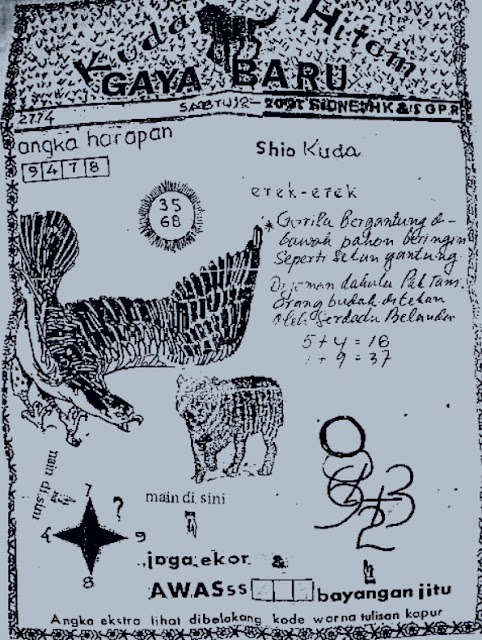 Kuda Hitam
GAYA BARU
2774
SABTU 12-
angka harapan
9 4 7 8
Shio Kuda
35
68
erek-erek
* Gorila Bergantung di-
bawah pohon beringin
Seperti Setan gantung.
Di jaman dahulu
orang budak ditekan
oleh Serdadu Belanda
5 + 4 = 16
+ 9 = 37
main di sini
main di sini
7
?
4
9
8
jaga ekor
AWASss
bayangan jitu
Angka ekstra lihat dibelakang kode warna tulisan kapur